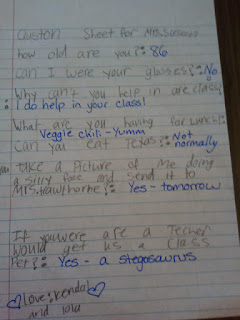 Quston Sheet for Mrs.
how old are you?: 86
Can I were your glases?: No
Why can't you help in are class?
: I do help in your class!
What are you having for lunch?:
Veggie chili - Yumm
Can you eat Texas?: Not normally
you take a Picture of Me doing
a silly face and send it to
Mrs. Hawthorne?: Yes - tomorrow
If you were are a Techer
Would get us a Class
Pet?: Yes - a stegosaurus
Love: Kendal
and lola